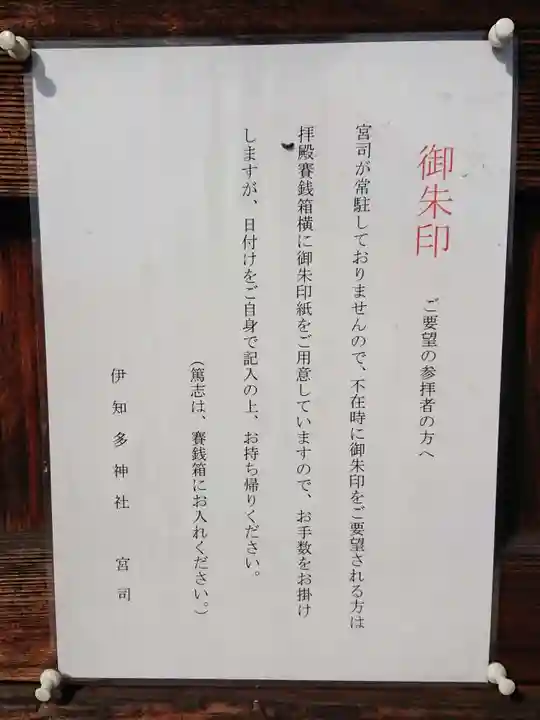 御朱印 ご要望の参拝者の方へ
宮司が常駐しておりませんので、不在時に御朱印をご要望される方は
拝殿賽銭箱横に御朱印紙をご用意していますので、お手数をお掛け
しますが、日付けをご自身で記入の上、お持ち帰りください。
（篤志は、賽銭箱にお入れください。）
伊知多神社 宮司